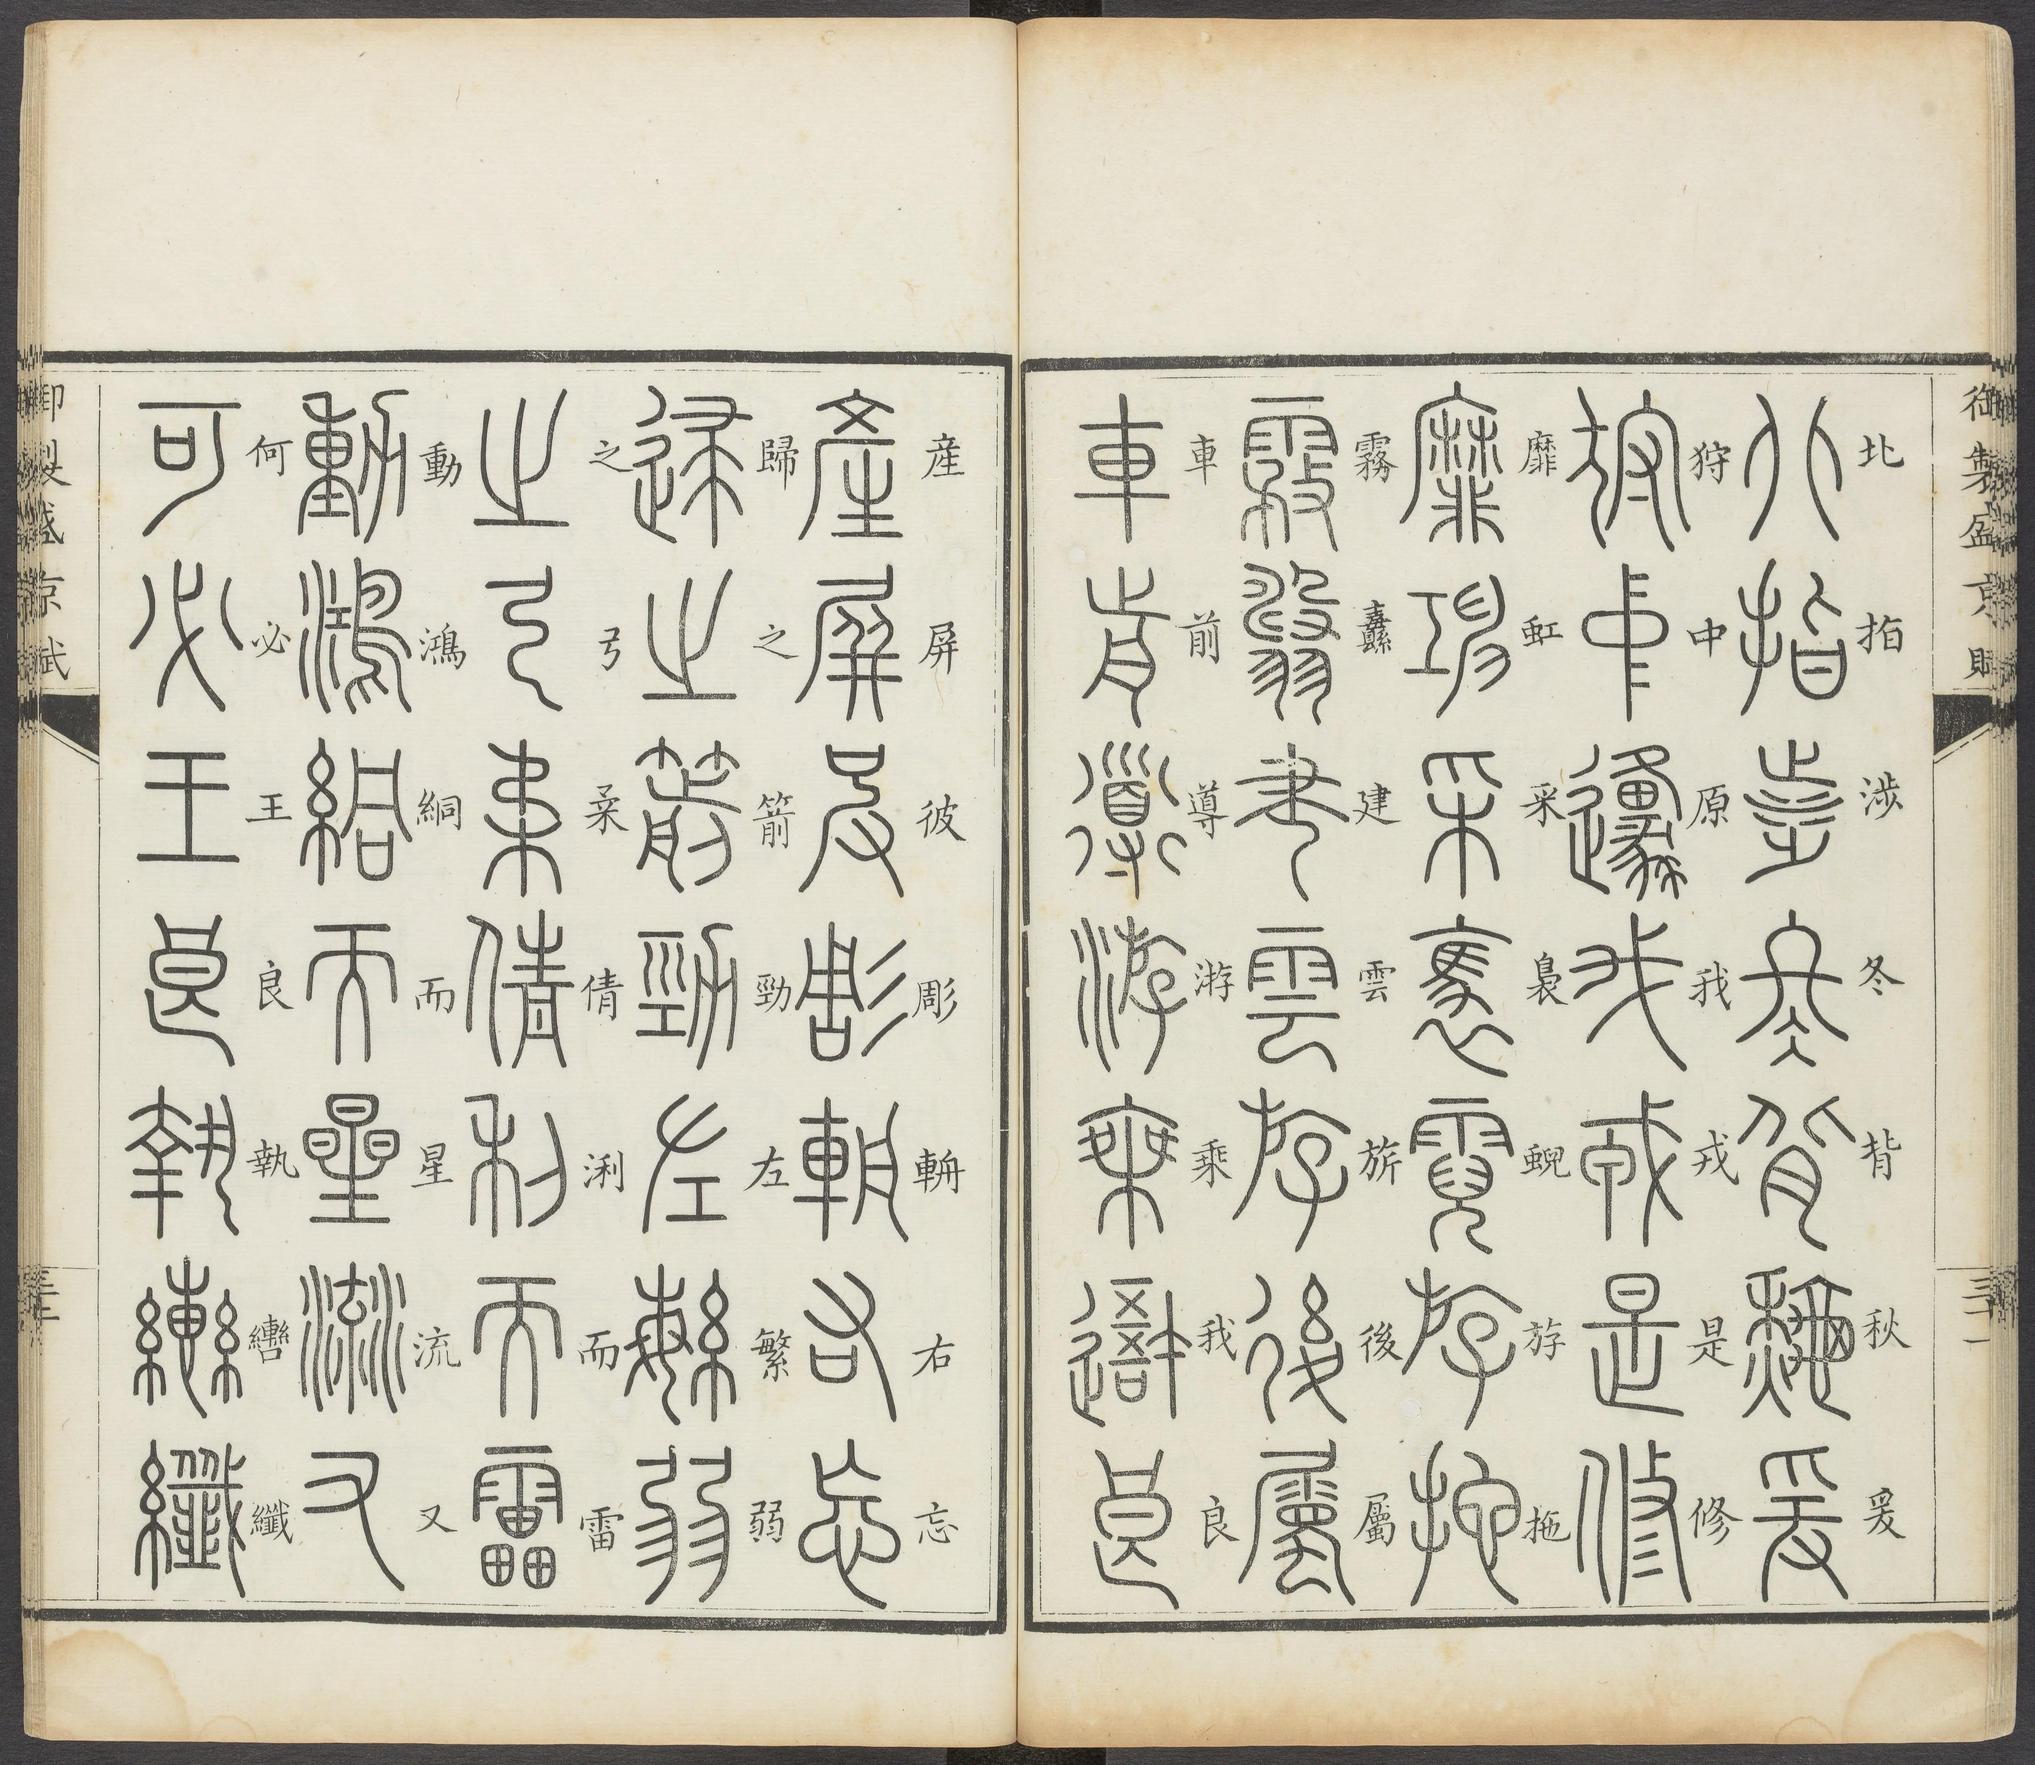 御製盛京賦
三十一
北指涉冬背秋爰
狩中原我戎是修
靡虹采裊蜺斿拖
霧纛建雲旂後屬
車前導游乘我良
産屏彼彫軿右忘
歸之箭勁左繁弱
之弓柔倩浰而雷
動鴻絧而星流又
何必王良執轡纖
御製盛京賦